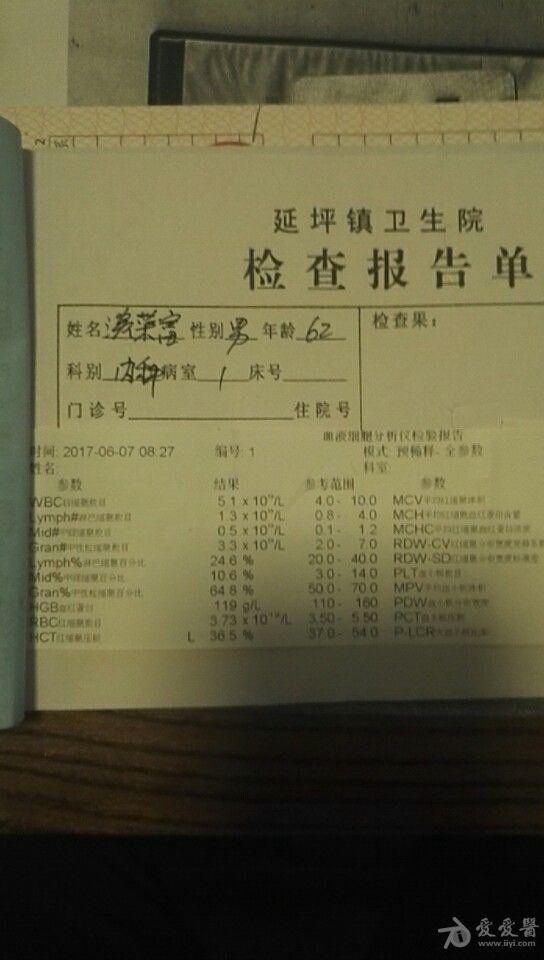 延坪镇卫生院
检查报告单
姓名 性别 男 年龄 62
检查果:
科别 内科 病室 1 床号
门诊号 住院号
血液细胞分析仪检验报告
时间: 2017-06-07 08:27 编号: 1 模式: 预稀样- 全参数
姓名: 科室:
参数 结果 参考范围 参数
WBC白细胞数目 5.1 x 10⁹/L 4.0 - 10.0 MCV平均红细胞体积
Lymph#淋巴细胞数目 1.3 x 10⁹/L 0.8 - 4.0 MCH平均红细胞血红蛋白含量
Mid#中间细胞数目 0.5 x 10⁹/L 0.1 - 1.2 MCHC平均红细胞血红蛋白浓度
Gran#中性粒细胞数目 3.3 x 10⁹/L 2.0 - 7.0 RDW-CV红细胞分布宽度变异系数
Lymph%淋巴细胞百分比 24.6 % 20.0 - 40.0 RDW-SD红细胞分布宽度标准差
Mid%中间细胞百分比 10.6 % 3.0 - 14.0 PLT血小板数目
Gran%中性粒细胞百分比 64.8 % 50.0 - 70.0 MPV平均血小板体积
HGB血红蛋白 119 g/L 110 - 160 PDW血小板分布宽度
RBC红细胞数目 3.73 x 10¹²/L 3.50 - 5.50 PCT血小板压积
HCT红细胞压积 L 36.5 % 37.0 - 54.0 P-LCR大血小板比率
爱爱醫
www.iiyi.com